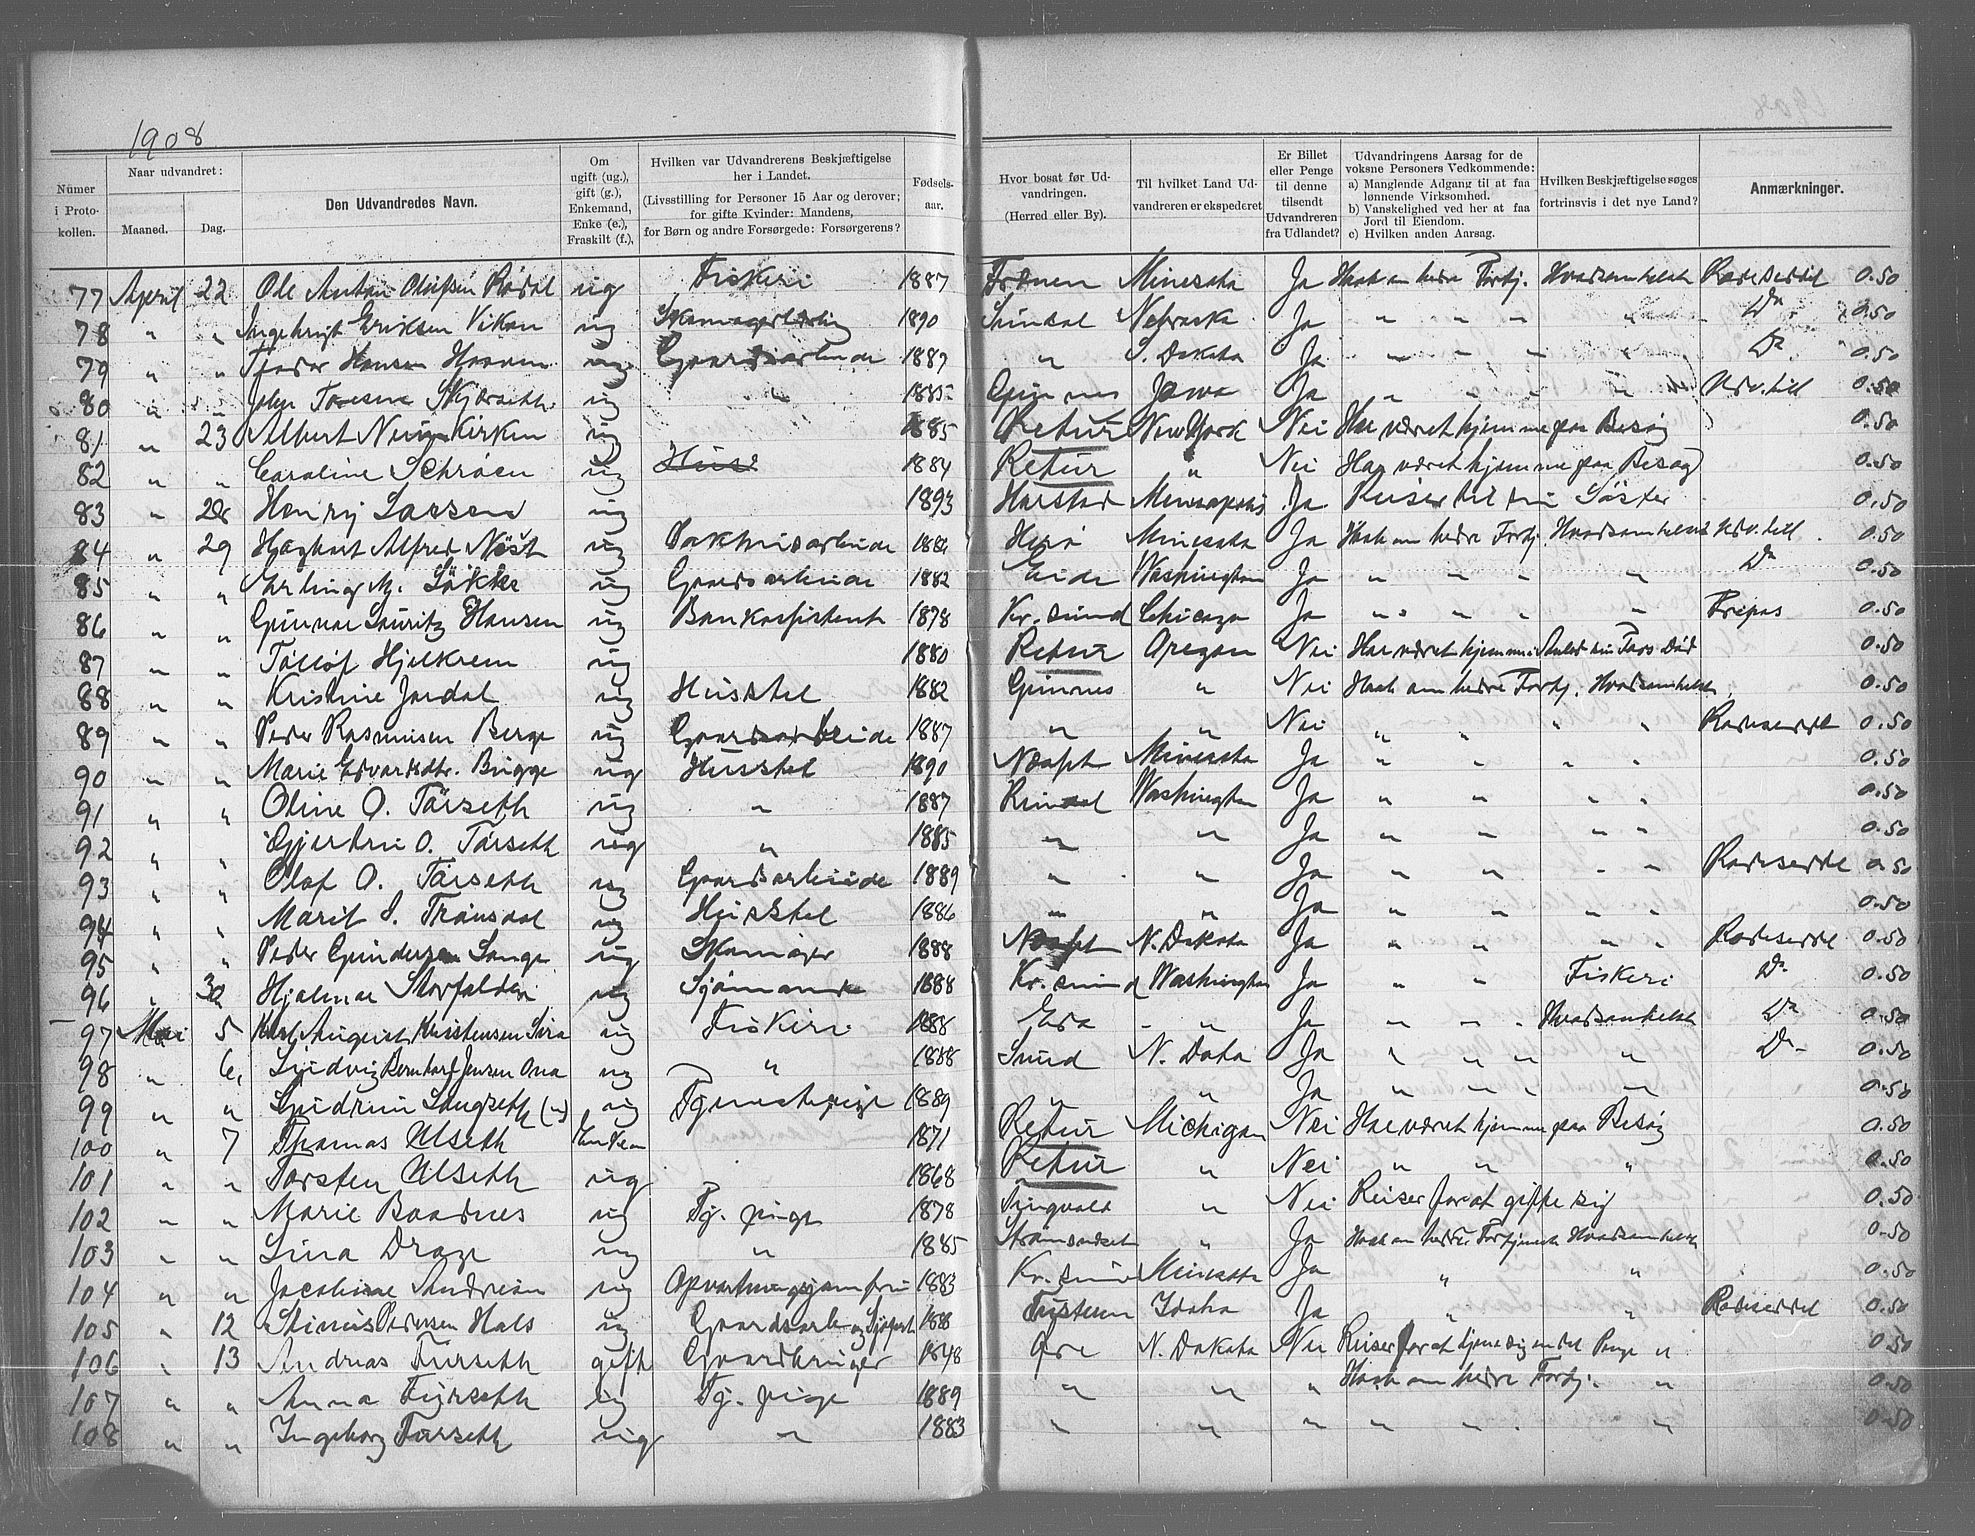 1908
Nümer i Protokollen.
Naar udvandret:
Maaned.
Dag.
Den Udvandredes Navn.
Om ugift (ug.), gift (g.), Enkemand, Enke (e.), Fraskilt (f.),
Hvilken var Udvandrerens Beskjæftigelse her i Landet.
(Livsstilling for Personer 15 Aar og derover; for gifte Kvinder: Mandens, for Børn og andre Forsørgede: Forsørgerens?
Fødselsaar.
Hvor bosat før Udvandringen.
(Herred eller By).
Til hvilket Land Udvandreren er ekspederet
Er Billet eller Penge til denne tilsendt Udvandreren fra Udlandet?
Udvandringens Aarsag for de voksne Personers Vedkommende:
a) Manglende Adgang til at faa lønnende Virksomhed.
b) Vanskelighed ved her at faa Jord til Eiendom.
c) Hvilken anden Aarsag.
Hvilken Beskjæftigelse søges fortrinsvis i det nye Land?
Anmærkninger.
77 April 22 Ole Anton Olufsen Rødal ug Fiskeri 1887 Frænen Minesota Ja Haab om bedre Fortj. Hvadsomhelst Radeseddel 0.50
78 " " Ingebrigt Eriksen Vikan ug 1890 Sundal Nebraska Ja " " " " Do 0.50
79 " " Hansen ug Gaardsarbeide 1887 " S. Dakota Ja " " " " Do 0.50
80 " " John ug " 1885 Jowa Ja " " " " Udv. till 0.50
81 " 23 Albert Kirken ug 1885 Retur New York Nei Har været hjemme paa Besøg 0.50
82 " " Caroline Schrøen ug 1884 Retur " Nei Har været hjemme paa Besøg 0.50
83 " 28 Henry Larsen ug 1893 Harstad Mineapolis Ja Reiser til sin Søster 0.50
84 " 29 Alfred Nøst ug 1886 Herø Minesota Ja Haab om bedre Fortj. Hvadsomhelst Udv. till 0.50
85 " " Erling M. Løkke ug Gaardsarbeide 1882 Eide Washington Ja " " " " Do 0.50
86 " " Gunnar Lauritz Hansen ug Bankassistent 1878 Kr. sund Chicago Ja " " " " Fripas 0.50
87 " " Tollof Hjelkrem ug 1880 Retur Oregon Nei Har været hjemme i Anled sin Fars Død 0.50
88 " " Kristine Jordal ug Husstel 1882 " Nei Haab om bedre Fortj. Hvadsomhelst 0.50
89 " " Peder Rasmusen Berge ug Gaardsarbeide 1887 " " Nei " " " " Radeseddel 0.50
90 " " Marie Edvardsdtr. Bugge ug Husstel 1890 Minesota Ja " " " " 0.50
91 " " Oline O. Tørseth ug " 1887 Rindal Washington Ja " " " " 0.50
92 " " Gjertrui O. Tørseth ug " 1885 " " Ja " " " " 0.50
93 " " Olaf O. Tørseth ug Gaardsarbeide 1889 " " Ja " " " " Radeseddel 0.50
94 " " Marit S. Trønsdal ug Husstel 1886 " " Ja " " " " 0.50
95 " " Peder Gundersen Lange ug Skomager 1888 N. Dakota Ja " " " " Radeseddel 0.50
96 " 30 Hjalmar ug Sjømand 1888 Kr. sund Washington Ja " " Fiskeri Do 0.50
97 Mai 5 Karl August Kristensen ug Fiskeri 1888 Edø " Ja " " " Hvadsomhelst Do 0.50
98 " 6 Ludvig Jensen ug " 1888 N. Ja " " " " Do 0.50
99 " " Gudrun ug Tjenestepige 1889 " " Ja " " " " 0.50
100 " 7 Thomas Ulseth 1871 Retur Michigan Nei Har været hjemme paa Besøg 0.50
101 " " Torsten Ulseth ug 1868 Retur " Nei " " " 0.50
102 " " Marie Baadnes ug Tj. pige 1878 Tingvold " Nei Reiser for at gifte sig 0.50
103 " " Lina Drage ug " 1885 Strømsneset " Ja Haab om bedre Fortjeneste Hvadsomhelst 0.50
104 " " Jacobine Andersen ug Opvartningsjomfru 1883 Kr. sund Minesota Ja " " 0.50
105 " " 12 Pedersen Hals ug 1888 Tusteren Idaho Ja " " Radeseddel 0.50
106 " 13 Andreas Furseth gift Gaardbruger 1848 Øre N. Dakota Nei Reiser for at tjene sig en del Penge " 0.50
107 " " Anna Furseth ug Tj. pige 1889 " " " Haab om bedre Fortj. " 0.50
108 " " Ingeborg Furseth ug " 1883 " " " " " " 0.50